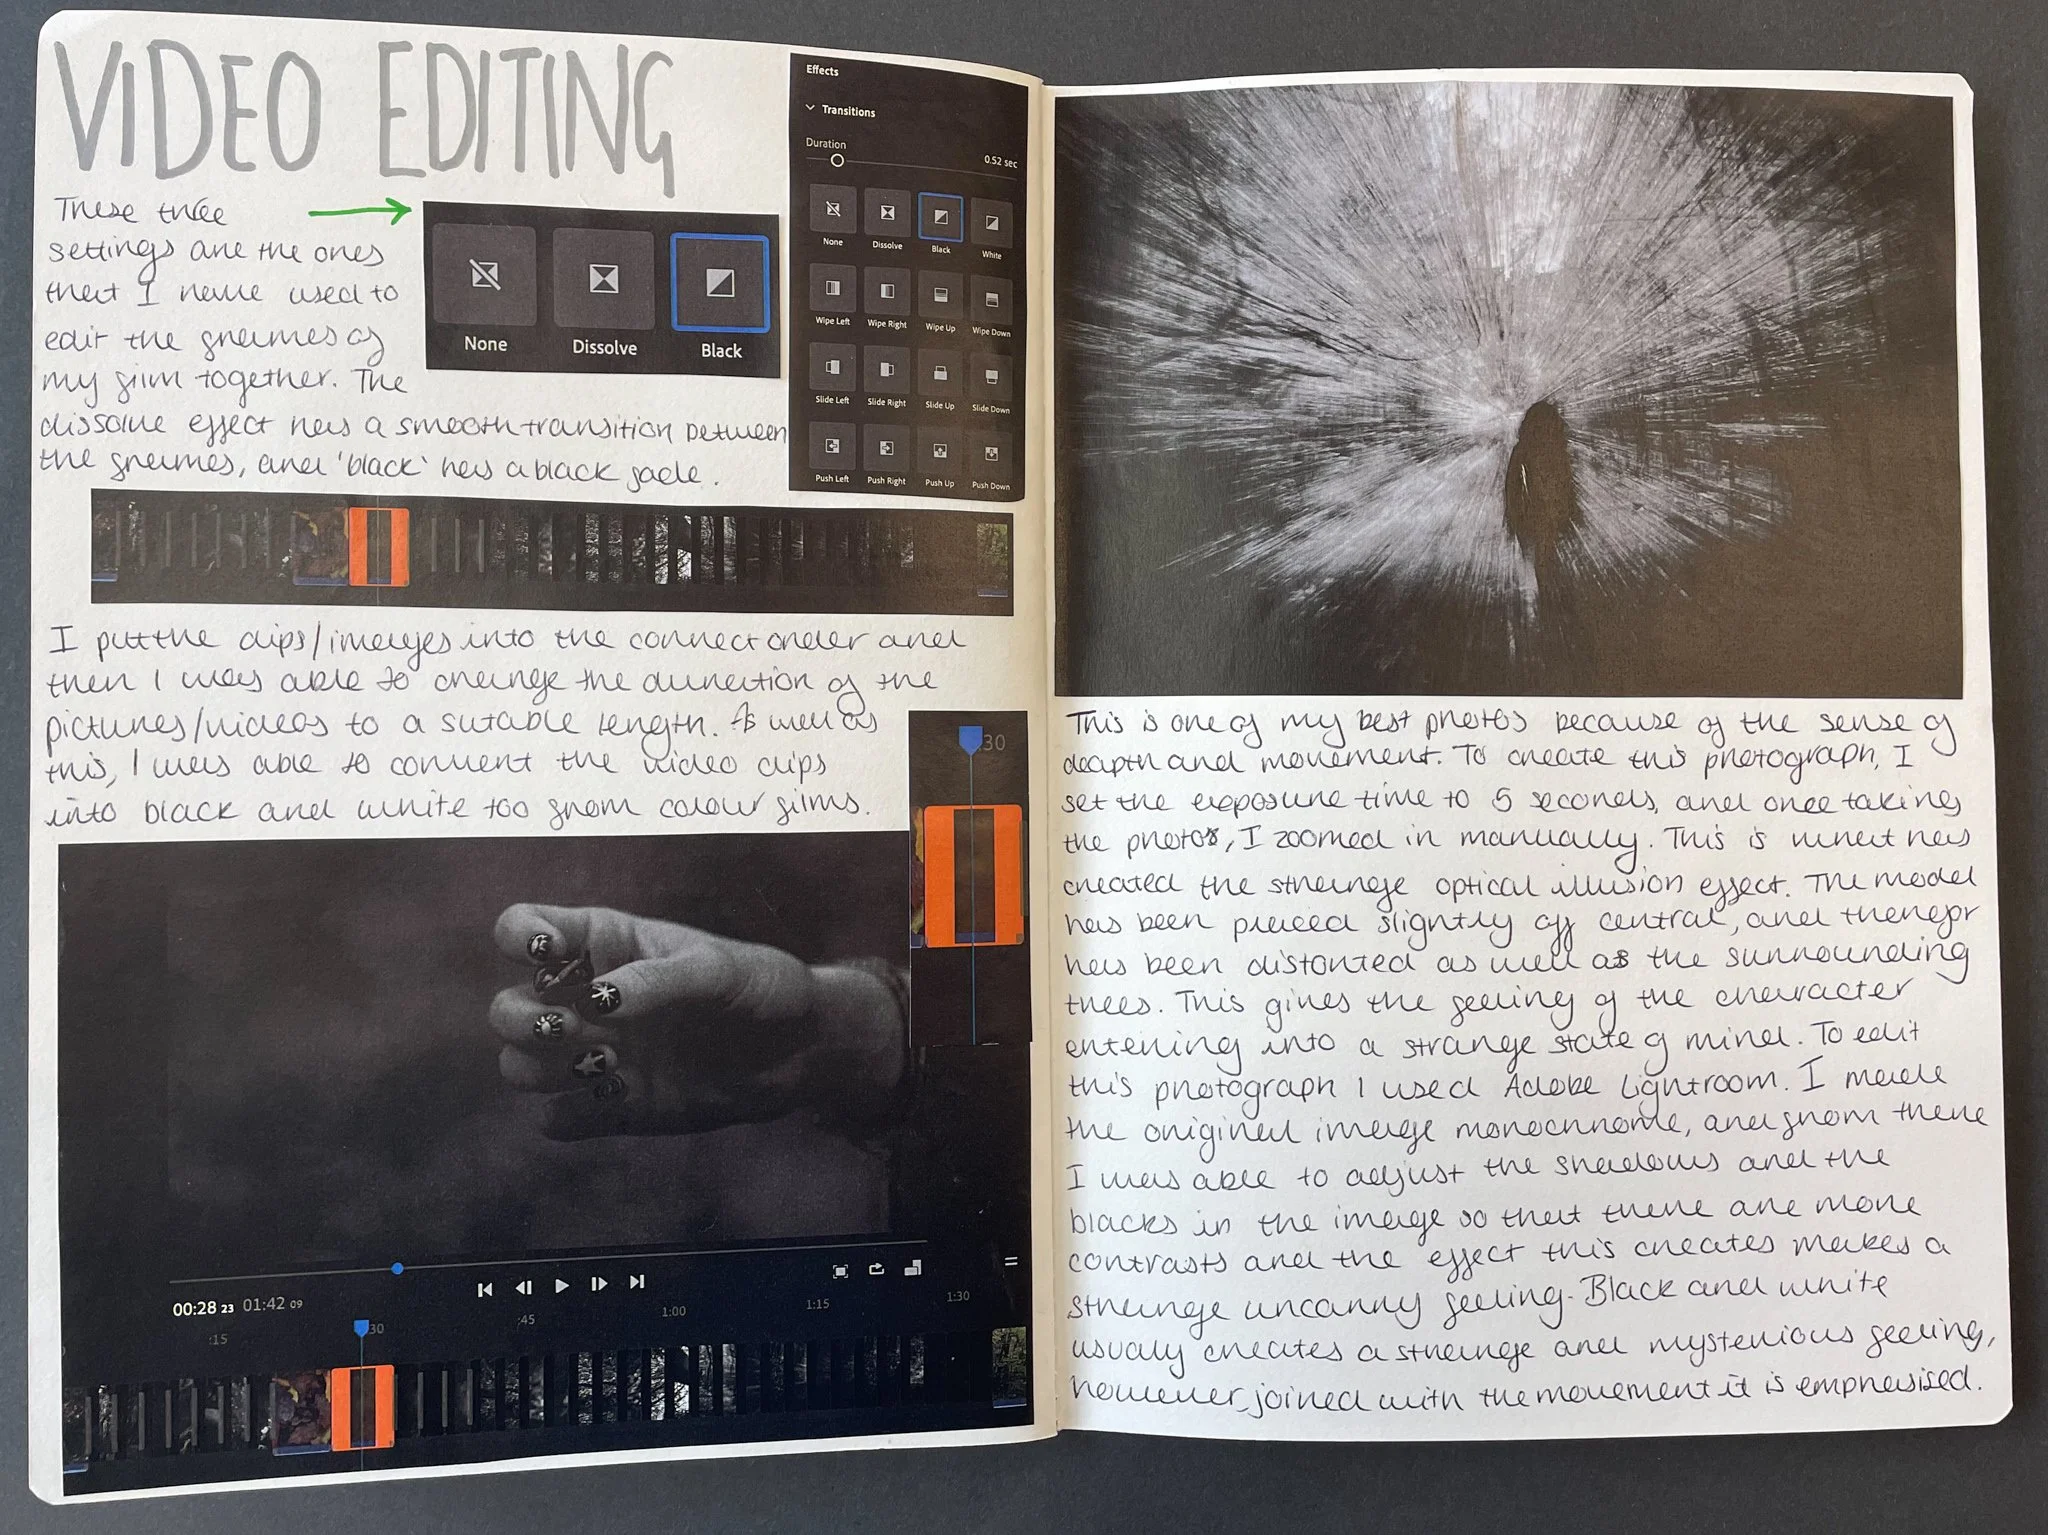 VIDEO EDITING
These three
settings are the ones
that I have used to
edit the frames of
my film together. The
dissolve effect has a smooth transition between
the frames, and 'black' has a black fade.
None
Dissolve
Black
Effects
Transitions
Duration
0.52 sec
None Dissolve Black White
Wipe Left Wipe Right Wipe Up Wipe Down
Slide Left Slide Right Slide Up Slide Down
Push Left Push Right Push Up Push Down
I put the clips/images into the correct order and
then I was able to change the duration of the
pictures/videos to a sutable length. As well as
this, I was able to convert the video clips
into black and white too from colour films.
:30
00:28 23 01:42 09
:15 :30 :45 1:00 1:15 1:30
This is one of my best photos because of the sense of
deapth and movement. To create this photograph, I
set the exposure time to 5 seconds, and once taking
the photos, I zoomed in manually. This is what has
created the strange optical illusion effect. The model
has been placed slightly off central, and therefor
has been distorted as well as the surrounding
trees. This gives the feeling of the character
entering into a strange state of mind. To edit
this photograph I used Adobe Lightroom. I made
the original image monochrome, and from there
I was able to adjust the shadows and the
blacks in the image so that there are more
contrasts and the effect this creates makes a
strange uncanny feeling. Black and white
usually creates a strange and mysterious feeling,
however, joined with the movement it is emphasised.